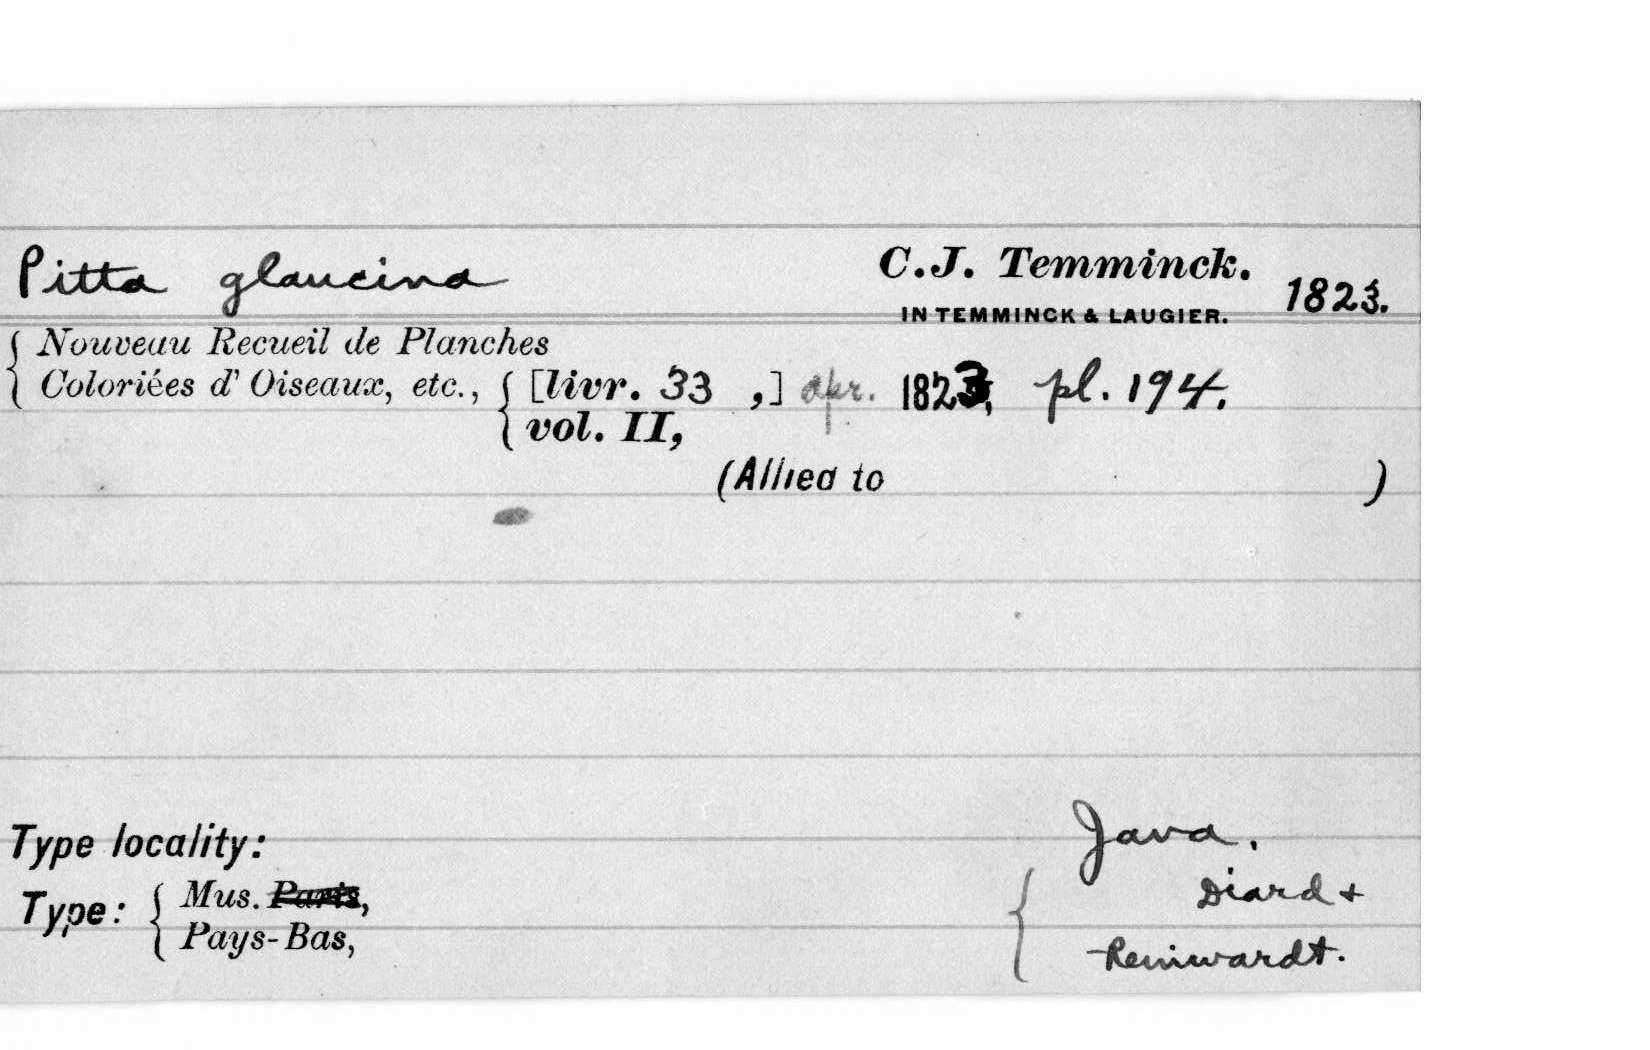 Pitta glaucina C.J. Temminck.
IN TEMMINCK & LAUGIER. 1823.
Nouveau Recueil de Planches
Coloriées d'Oiseaux, etc., [livr. 33 ,] apr. 1823, pl. 194.
vol. II,
(Allied to )
Type locality: Java.
Type: Mus. Paris, Diard +
Pays-Bas, Reinwardt.